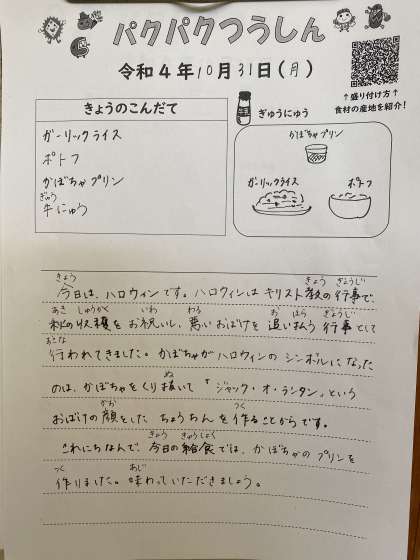 パクパクつうしん
令和4年10月31日(月)
↑盛り付け方↑
食材の産地を紹介!
きょうのこんだて
ガーリックライス
ポトフ
かぼちゃプリン
ぎゅう
牛にゅう
ぎゅうにゅう
かぼちゃプリン
ガーリックライス
ポトフ
きょう きょう ぎょうじ
今日は、ハロウィンです。ハロウィンはキリスト教の行事で、
あき しゅうかく いわ わる お はら ぎょうじ
秋の収穫をお祝いし、悪いおばけを追い払う行事として
おこな
行われてきました。かぼちゃがハロウィンのシンボルになった
ぬ
のは、かぼちゃをくり抜いて「ジャック・オ・ランタン」という
かお つく
おばけの顔をしたちょうちんを作ることからです。
きょう きゅうしょく
これにちなんで、今日の給食では、かぼちゃのプリンを
つく あじ
作りました。味わっていただきましょう。